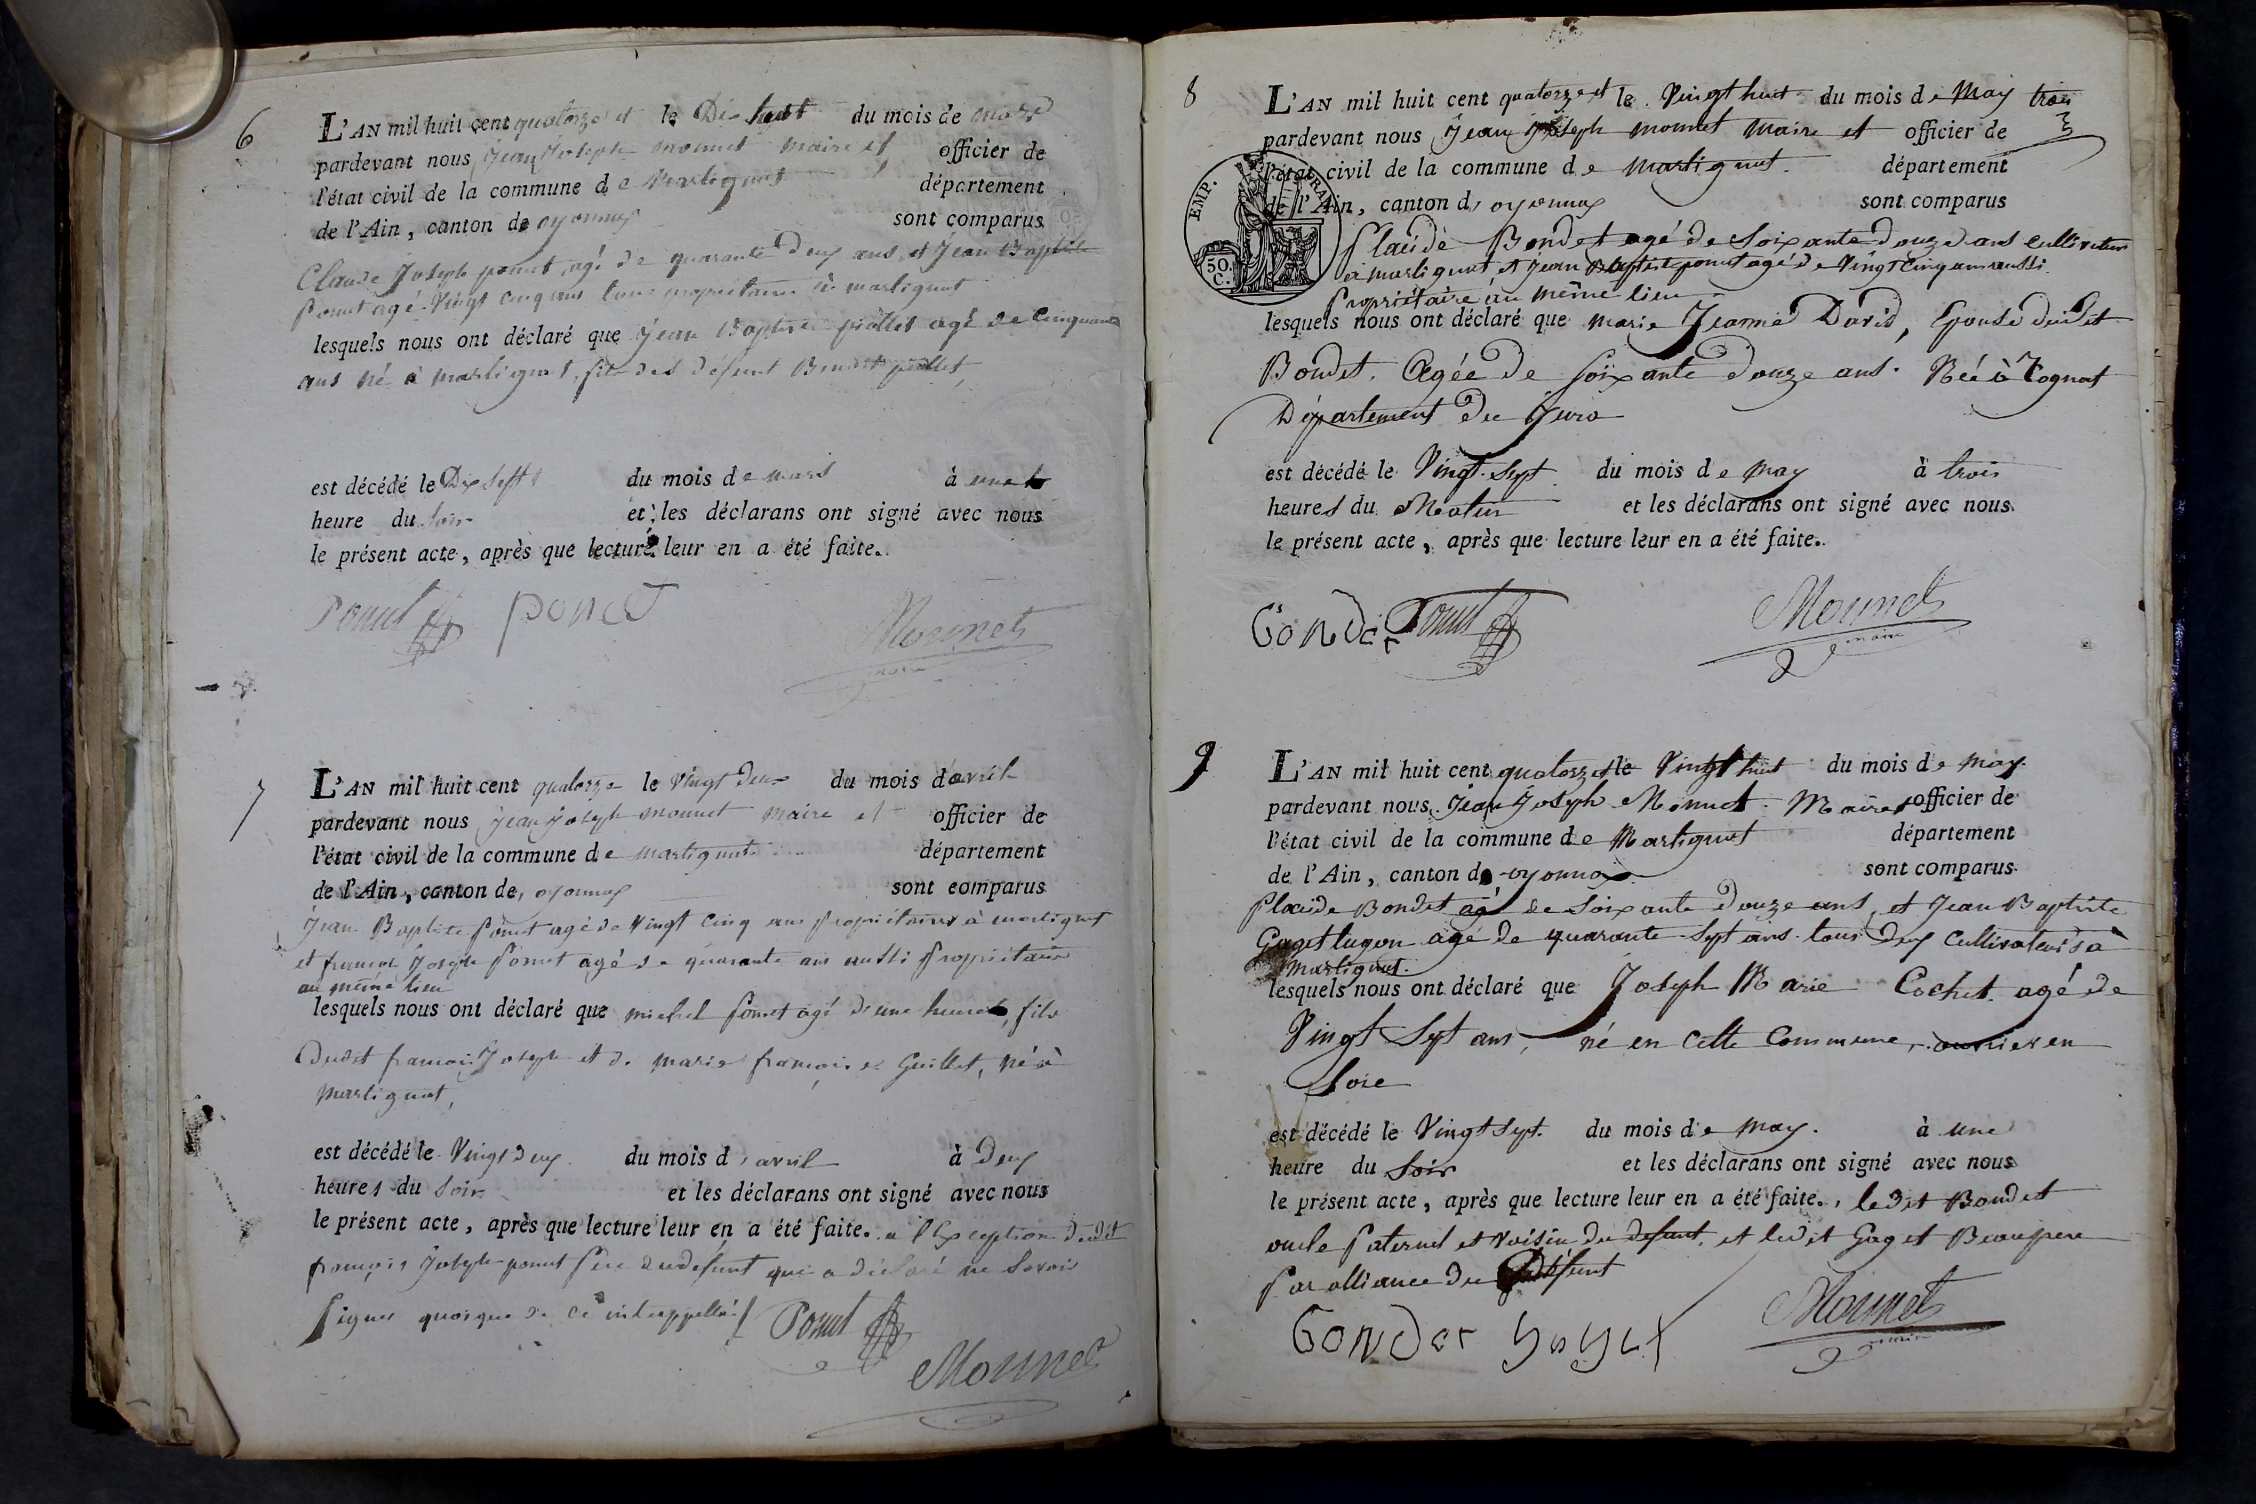 6
L'AN mil huit cent quatorze et le Dix huit du mois de mars
pardevant nous Jean Joseph monnet maire et officier de
l'état civil de la commune de Martignat département
de l'Ain, canton de oyonnax sont comparus
Claude Joseph ponet, agé de quarante deux ans, et Jean Baptiste
Ponet agé Vingt cinq ans tous propriétaires à martignat
lesquels nous ont déclaré que Jean Baptiste piollet agé de Cinquante
ans né à martignat, fils des défunt Benoit piollet,
est décédé le Dix Sept du mois de mars à une
heure du soir et les déclarans ont signé avec nous
le présent acte, après que lecture leur en a été faite.
Ponet ponet
Monnet
maire
7
L'AN mil huit cent quatorze le Vingt deux du mois d'avril
pardevant nous Jean Joseph monnet maire et officier de
l'état civil de la commune de martignat département
de l'Ain, canton de, oyonnax sont comparus
Jean Baptiste Ponet agé de Vingt Cinq ans propriétaire à martignat
et françois Joseph Ponet agé de quarante ans aussi Propriétaire
au même lieu
lesquels nous ont déclaré que michel Ponet agé d'une heure, fils
dudit françois Joseph et de marie françoise Guillet, né à
martignat,
est décédé le Vingt deux du mois d'avril à Deux
heures du Soir et les déclarans ont signé avec nous
le présent acte, après que lecture leur en a été faite. a l'Exception dudit
françois Joseph ponet Père du défunt qui a déclaré ne Savoir
Signer quoique de ce interppellé
Ponet
Monnet
8
L'AN mil huit cent quatorze et le Vingt huit du mois de May trois
pardevant nous Jean Joseph monnet maire et officier de
l'état civil de la commune de martignat département
de l'Ain, canton d'oyonnax sont comparus
EMP. FRAN
50. C.
Placide Bondet agé de Soixante douze ans cultivateur
à martignat et Jean Baptiste ponet agé de Vingt Cinq ans aussi
Propriétaire au même lieu
lesquels nous ont déclaré que marie Jeanne David, Epouse dudit
Bondet. Agée de soixante Douze ans. Née à Rognat
Département du Jura
est décédé le Vingt-Sept du mois de may à trois
heures du Matin et les déclarans ont signé avec nous
le présent acte, après que lecture leur en a été faite.
Gondet Ponet
Monnet
maire
9
L'AN mil huit cent quatorze et le Vingt huit du mois de may
pardevant nous Jean Joseph Monnet Maire et officier de
l'état civil de la commune de Martignat département
de l'Ain, canton d'oyonnax sont comparus
Placide Bondet agé de Soixante Douze ans, et Jean Baptiste
Gaget lugon agé de quarante-Sept ans tous deux Cultivateurs à
martignat.
lesquels nous ont déclaré que Joseph Marie Cochet agé de
Vingt Sept ans, né en Cette Commune, ouvrier en
Soie
est décédé le Vingt Sept. du mois de may. à une
heure du Soir et les déclarans ont signé avec nous
le présent acte, après que lecture leur en a été faite., ledit Bondet
oncle Paternel et Voisin du défunt, et ledit Gaget Beaupere
Par alliance du Défunt
Gondet gaget
Monnet
maire